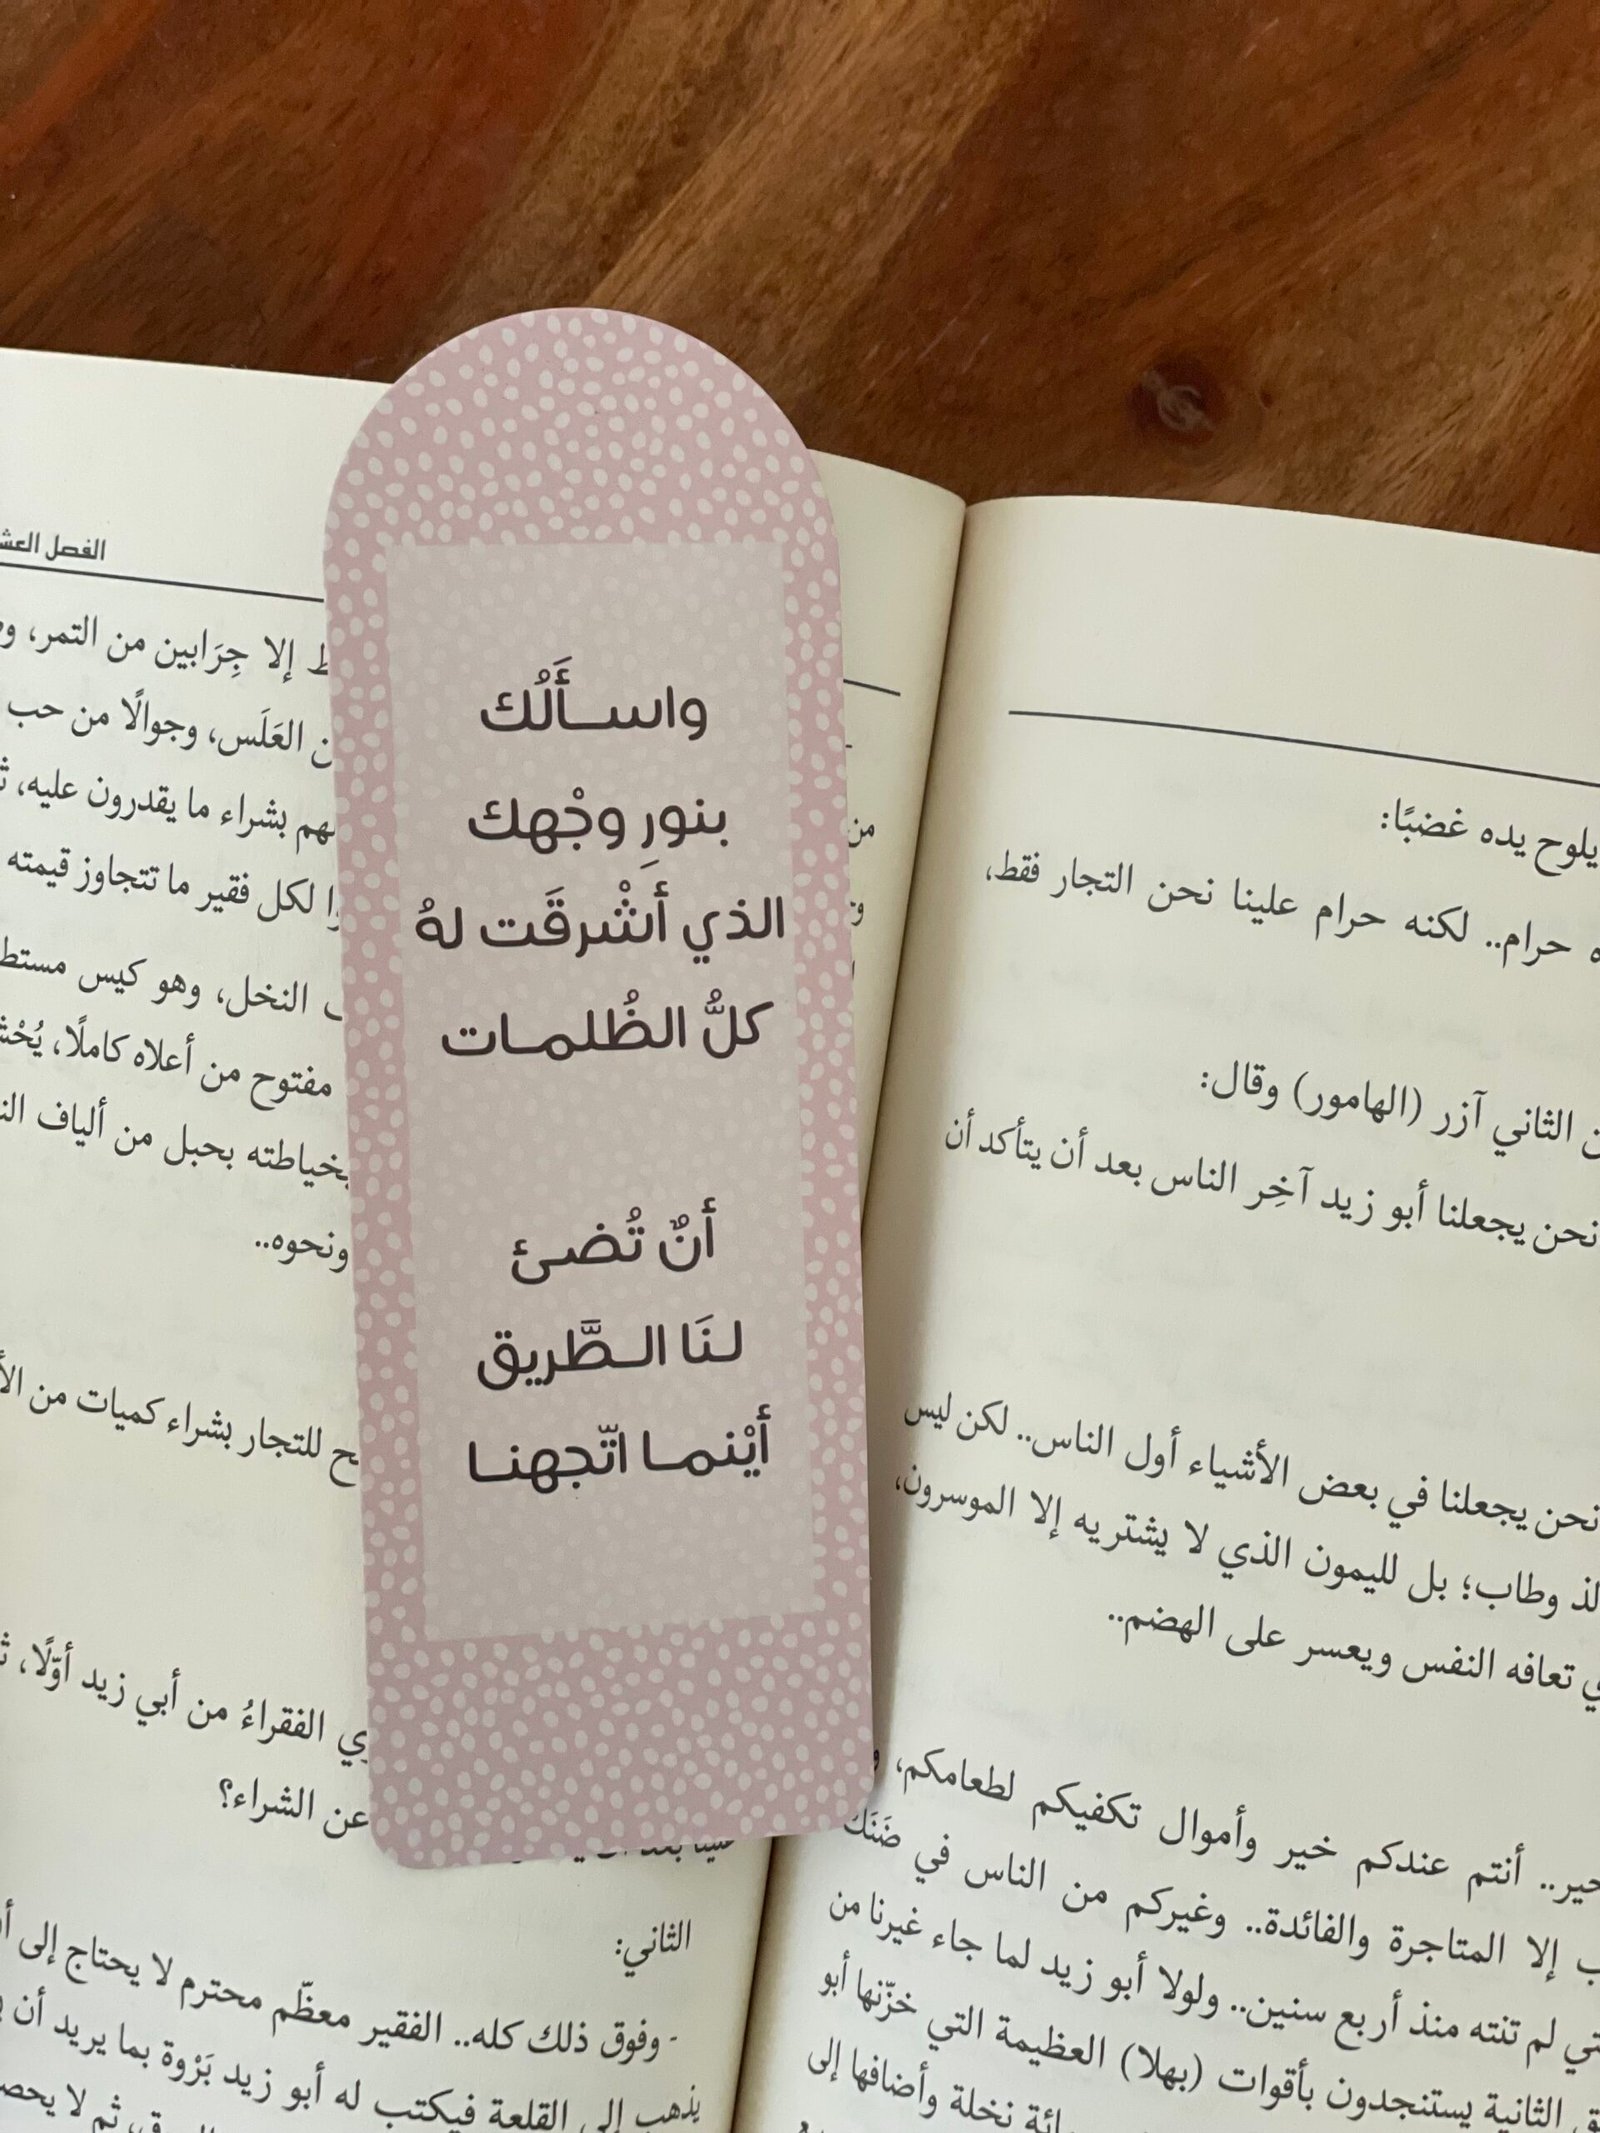 واســأَلُك
بنورِ وجْهك
الذي أَشْرقَت لهُ
كلُّ الظُلمـات
أنٌ تُضئ
لنَا الــطَّريق
أيْنمـا اتّجهنـا
الفصل
إلا جِرَابين من التمر،
العَلَس، وجوالًا من حب
بشراء ما يقدرون عليه،
لكل فقير ما تتجاوز قيمته
النخل، وهو كيس
مفتوح من أعلاه كاملًا،
بخياطته بحبل من ألياف
ونحوه..
للتجار بشراء كميات من
الفقراءُ من أبي زيد أوّلًا،
عن الشراء؟
الثاني:
- وفوق ذلك كله.. الفقير معظّم محترم لا يحتاج إلى
يذهب إلى القلعة فيكتب له أبو زيد بَرْوة بما يريد أن
ثم لا
يلوح يده غضبًا:
حرام.. لكنه حرام علينا نحن التجار فقط،
الثاني آزر (الهامور) وقال:
نحن يجعلنا أبو زيد آخِر الناس بعد أن يتأكد أن
نحن يجعلنا في بعض الأشياء أول الناس.. لكن ليس
لذ وطاب؛ بل لليمون الذي لا يشتريه إلا الموسرون،
تعافه النفس ويعسر على الهضم..
أنتم عندكم خير وأموال تكفيكم لطعامكم،
إلا المتاجرة والفائدة.. وغيركم من الناس في ضَنَك
لم تنته منذ أربع سنين.. ولولا أبو زيد لما جاء غيرنا من
الثانية يستنجدون بأقوات (بهلا) العظيمة التي خزّنها أبو
نخلة وأضافها إلى